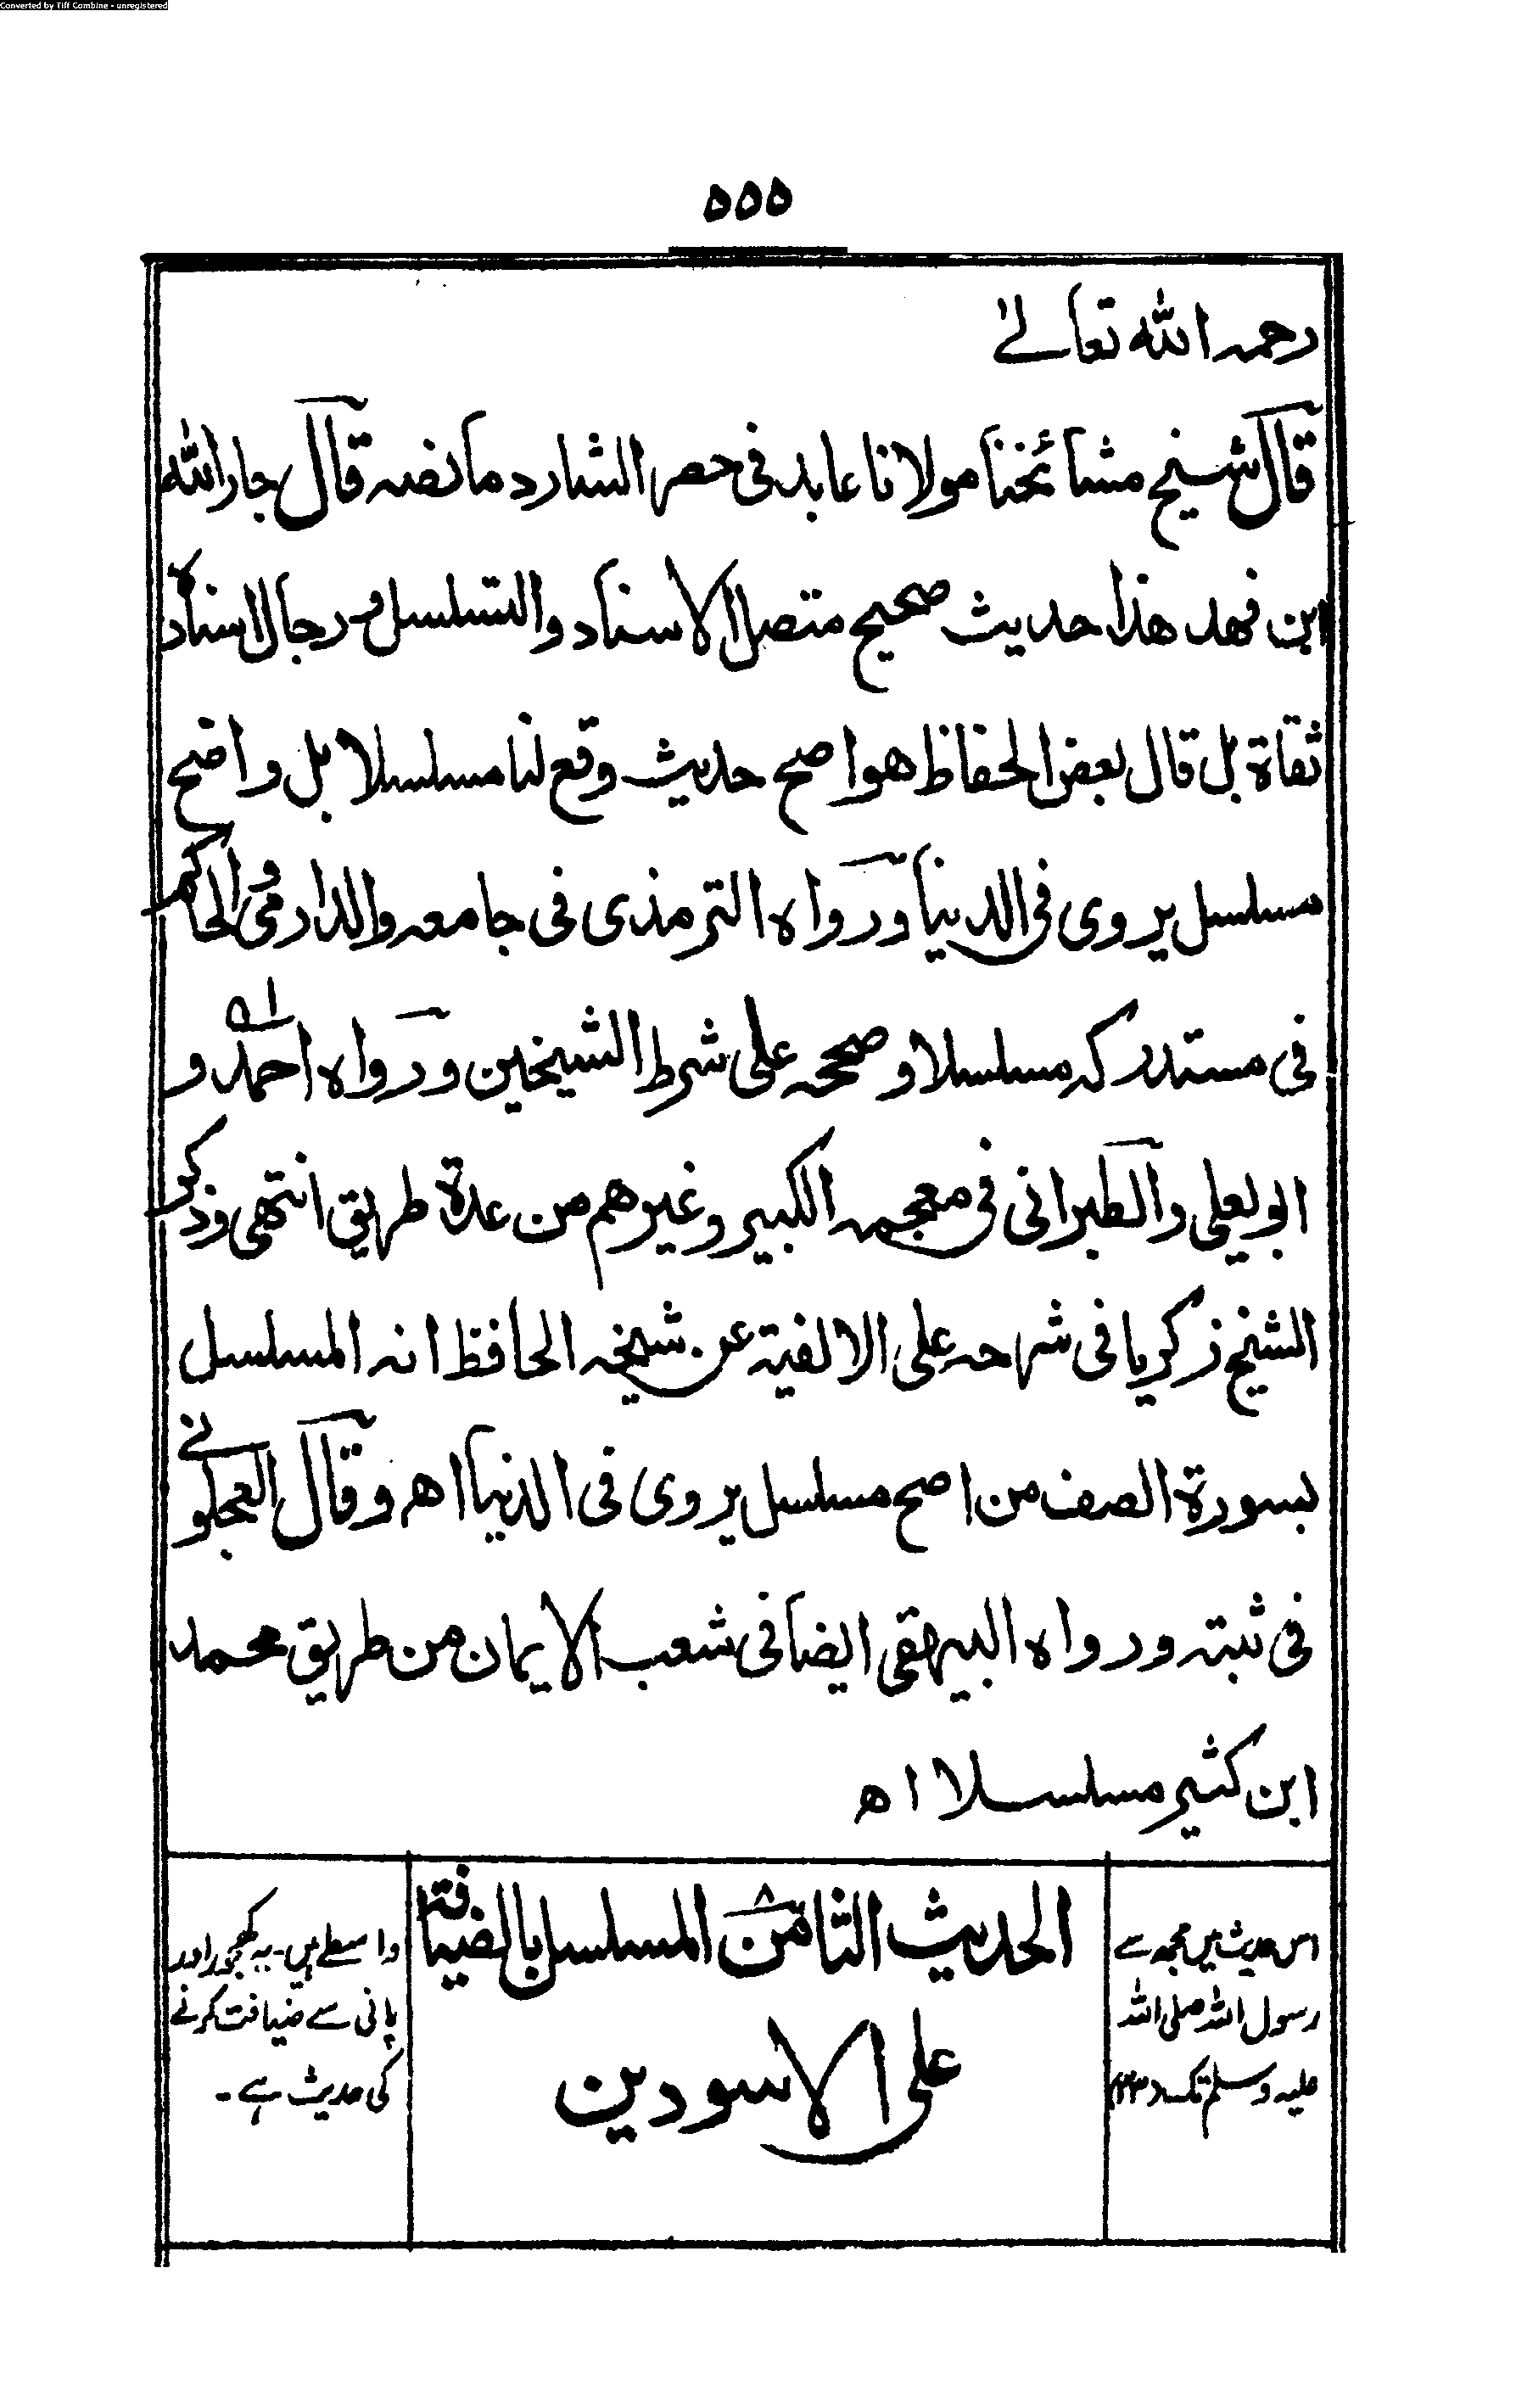 Converted by Tiff Combine - unregistered
۵۵۵
رحمہ اللہ تعالےٰ
قال شیخ مشائخنا مولانا عابد فی حصر الشارد ما نصہ قال جار اللہ
ابن فهد هذا حدیث صحیح متصل الاسناد والتسلسل ورجال اسنادہ
ثقاۃ بل قال بعض الحفاظ هو اصح حدیث وقع لنا مسلسلا بل واضح
مسلسل یروی فی الدنیا ورواہ الترمذی فی جامعہ والدارمی والحاکم
فی مستدرکہ مسلسلا وصححہ علی شرط الشیخین ورواہ احمد و
ابویعلی والطبرانی فی معجمہ الکبیر وغیرهم من عدۃ طریق انتهی وذکر
الشیخ زکریا فی شرحہ علی الالفیۃ عن شیخہ الحافظ انہ المسلسل
بسورۃ الصف من اصح مسلسل یروی فی الدنیا اھ وقال العجلونے
فی ثبتہ ورواہ البیهقی ایضا فی شعب الایمان من طریق محمد
ابن کثیر مسلسلا اھ
الحدیث الثامن المسلسل بالضیافۃ
علی الاسودین
اس حدیث میں مجھ سے
رسول اللہ صلی اللہ
علیہ وسلم تک (۲۳)
واسطے ہیں۔ یہ کھجور اور
پانی سے ضیافت کرنے
کی حدیث ہے۔